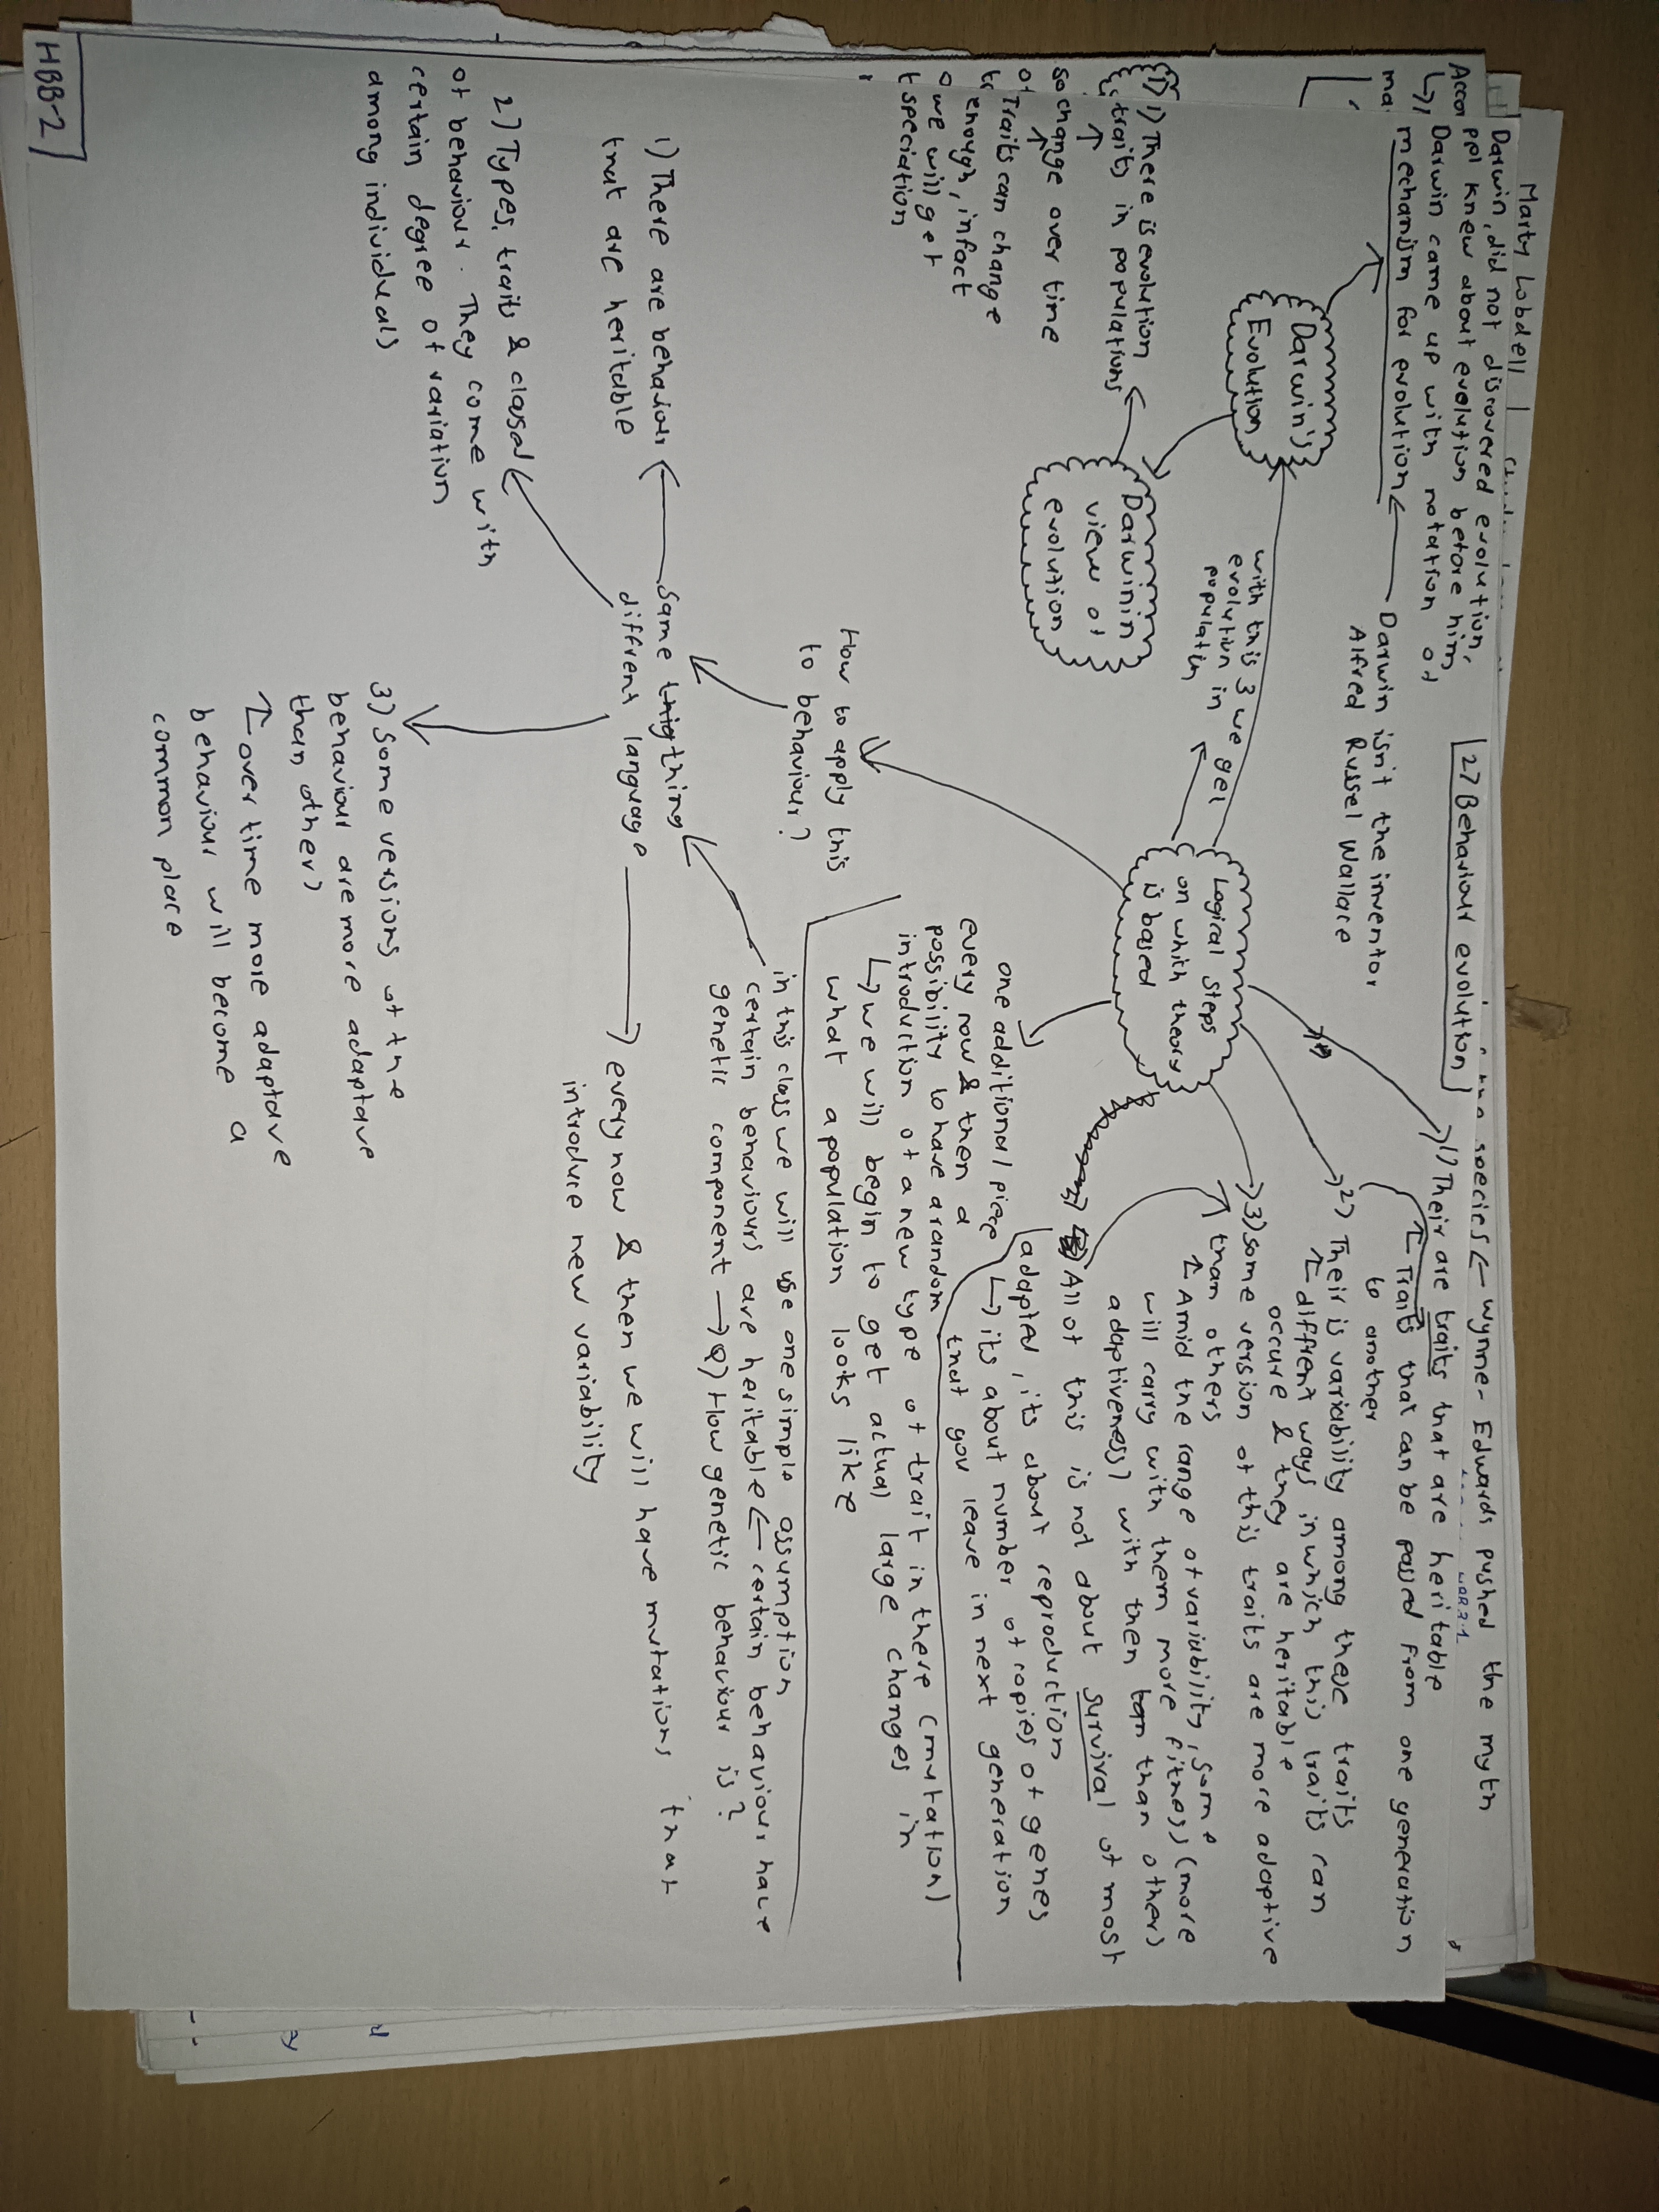 Marty Lobdell
Darwin, did not discovered evolution,
ppl knew about evolution before him,
Darwin came up with notation of
mechanism for evolution
Darwin isn't the inventor
Alfred Russel Wallace
2) Behaviour evolution
species ← Wynne-Edwards pushed the myth
Darwin's
Evolution
Darwinin
view of
evolution
1) There is evolution
traits in populations
change over time
Traits can change
enough, infact
we will get
speciation
with this 3 we get
evolution in
populatin
Logical Steps
on which theory
is based
1) Their are traits that are heritable
Traits that can be passed from one generation
to another
2) Their is variability among these traits
different ways in which this traits can
occure & they are heritable
3) some version of this traits are more adaptive
than others
Amid the range of variability, some
will carry with them more fitness (more
adaptiveness) with then than others
All of this is not about survival of most
adapted, its about reproduction
its about number of copies of genes
that you leave in next generation
one additional piece
every now & then a
possibility to have a random
introduction of a new type of trait in there (mutation)
↳ we will begin to get actual large changes in
what a population looks like
How to apply this
to behaviour?
in this class we will use one simple assumption
certain behaviours are heritable ← certain behaviour have
genetic component → Q) How genetic behaviour is?
Same thing
diffrent language
every now & then we will have mutations that
introduce new variability
1) There are behaviour
that are heritable
2) Types, traits & classes
of behaviour. They come with
certain degree of variation
among individuals
3) Some versions of the
behaviour are more adaptave
than other)
over time more adaptave
behaviour will become a
common place
HBB-2